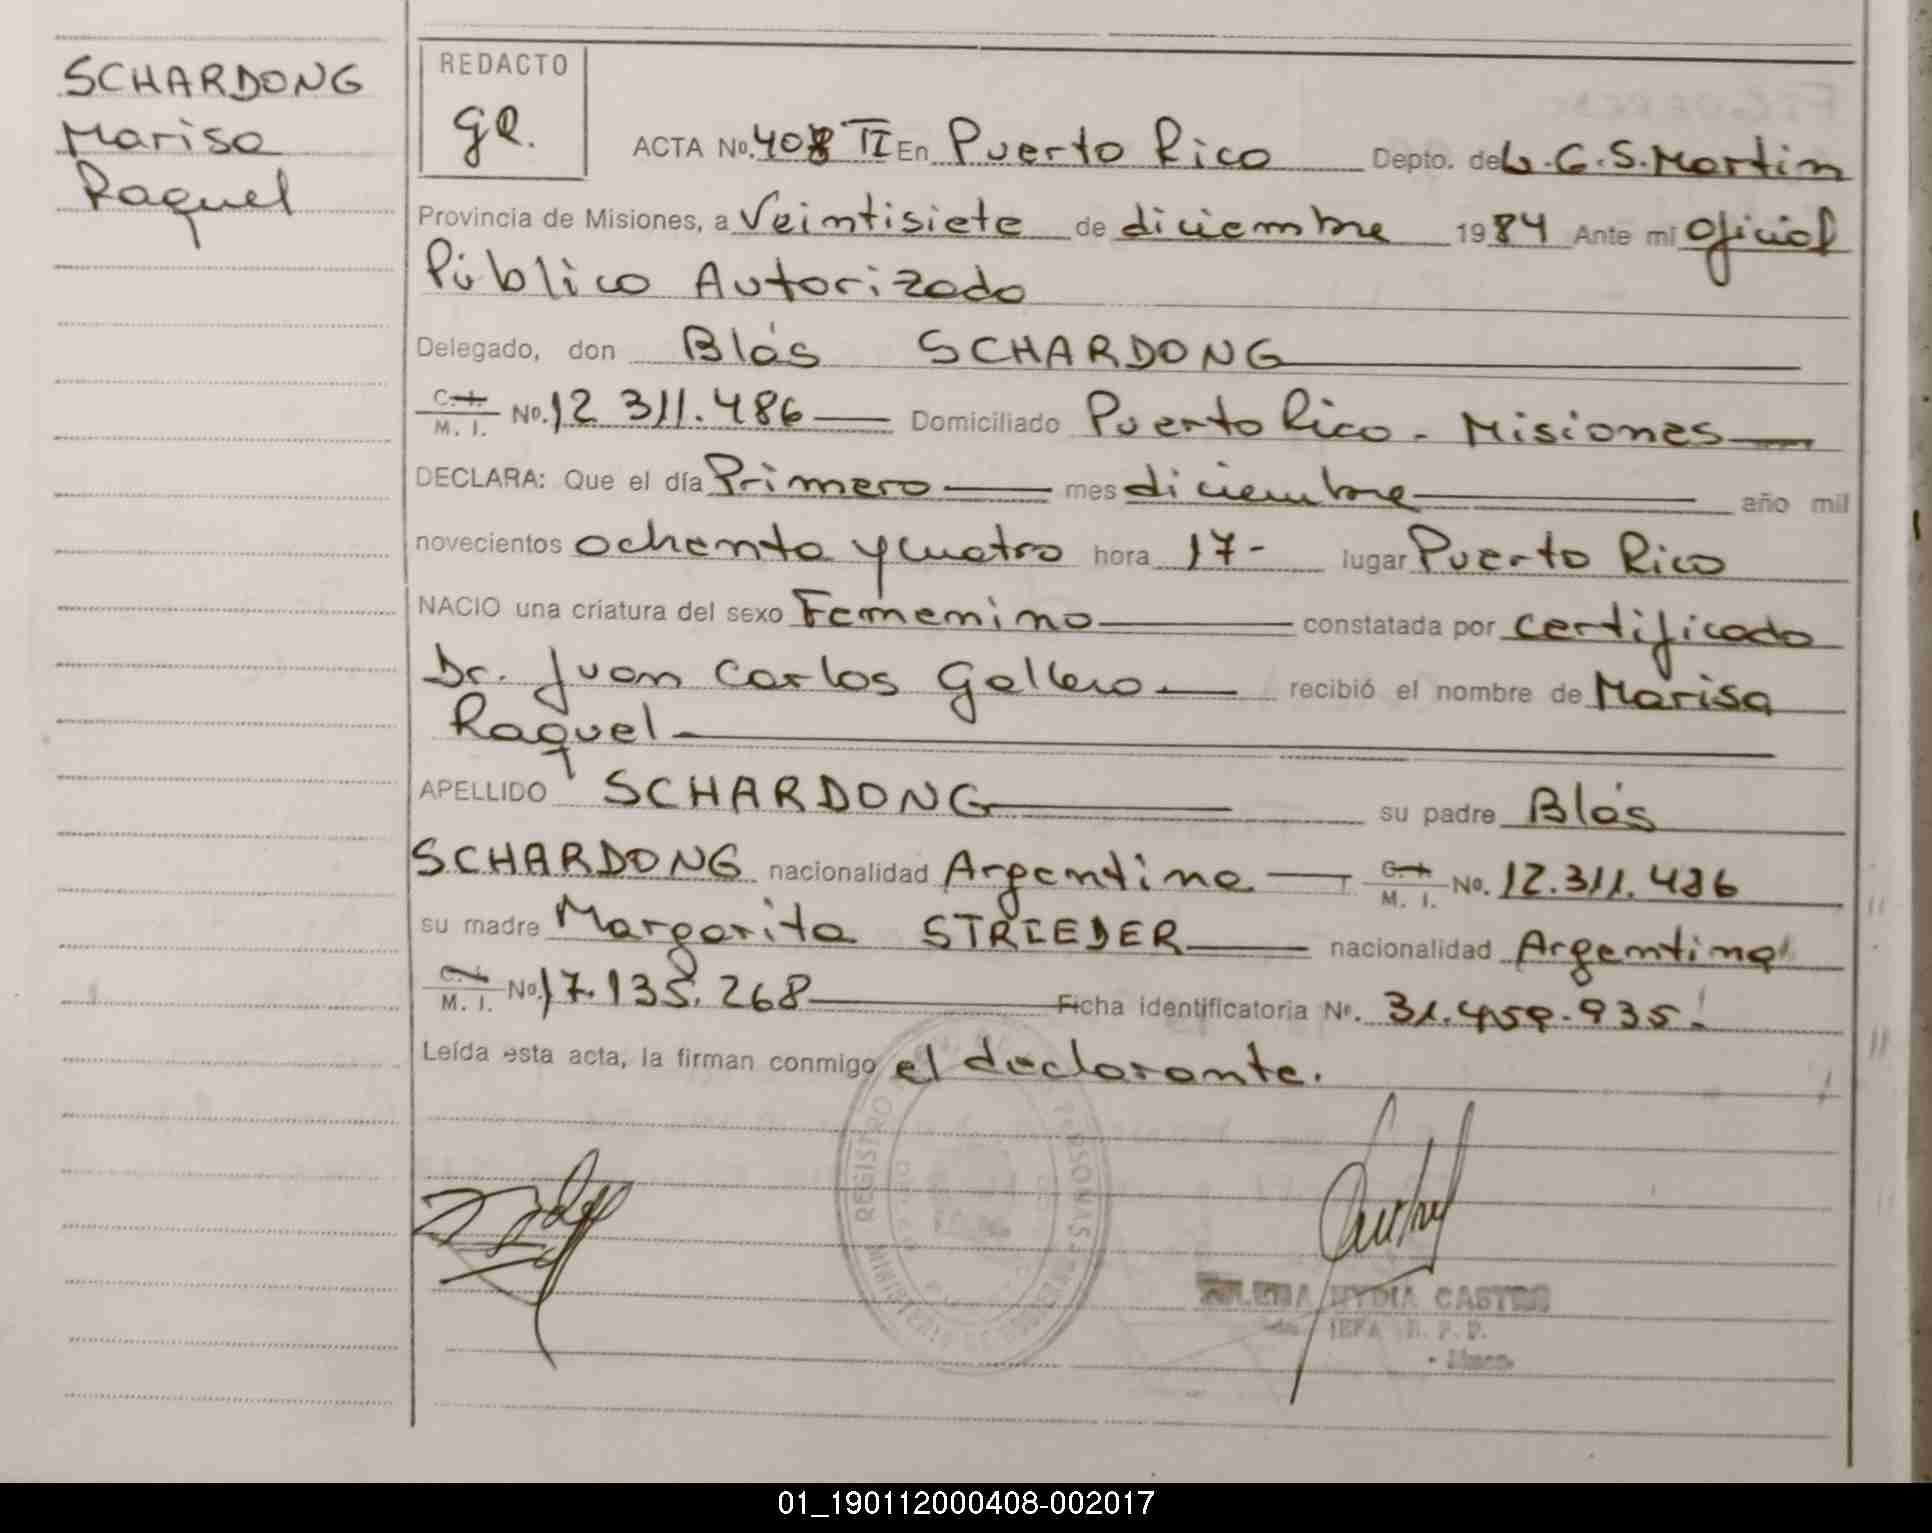 SCHARDONG
Marisa
Raquel
REDACTO
ACTA No. 408 II En Puerto Rico Depto. de L.G.S.Martin
Provincia de Misiones, a Veintisiete de diciembre 1984 Ante mi Oficial
Público Autorizado
Delegado, don Blás SCHARDONG
C. I. M. I. No. 12 311.486 Domiciliado Puerto Rico - Misiones
DECLARA: Que el día Primero mes diciembre año mil
novecientos ochenta y cuatro hora 17- lugar Puerto Rico
NACIO una criatura del sexo Femenino constatada por certificado
Dr. Juan Carlos Gallero recibió el nombre de Marisa
Raquel
APELLIDO SCHARDONG su padre Blás
SCHARDONG nacionalidad Argentina C. I. M. I. No. 12.311.486
su madre Margarita STRIEDER nacionalidad Argentina
C. I. M. I. No. 17.135.268 Ficha identificatoria Nº. 31.459.935.
Leída esta acta, la firman conmigo el declarante.
REGISTRO PERSONAS
CASTRO
01_190112000408-002017